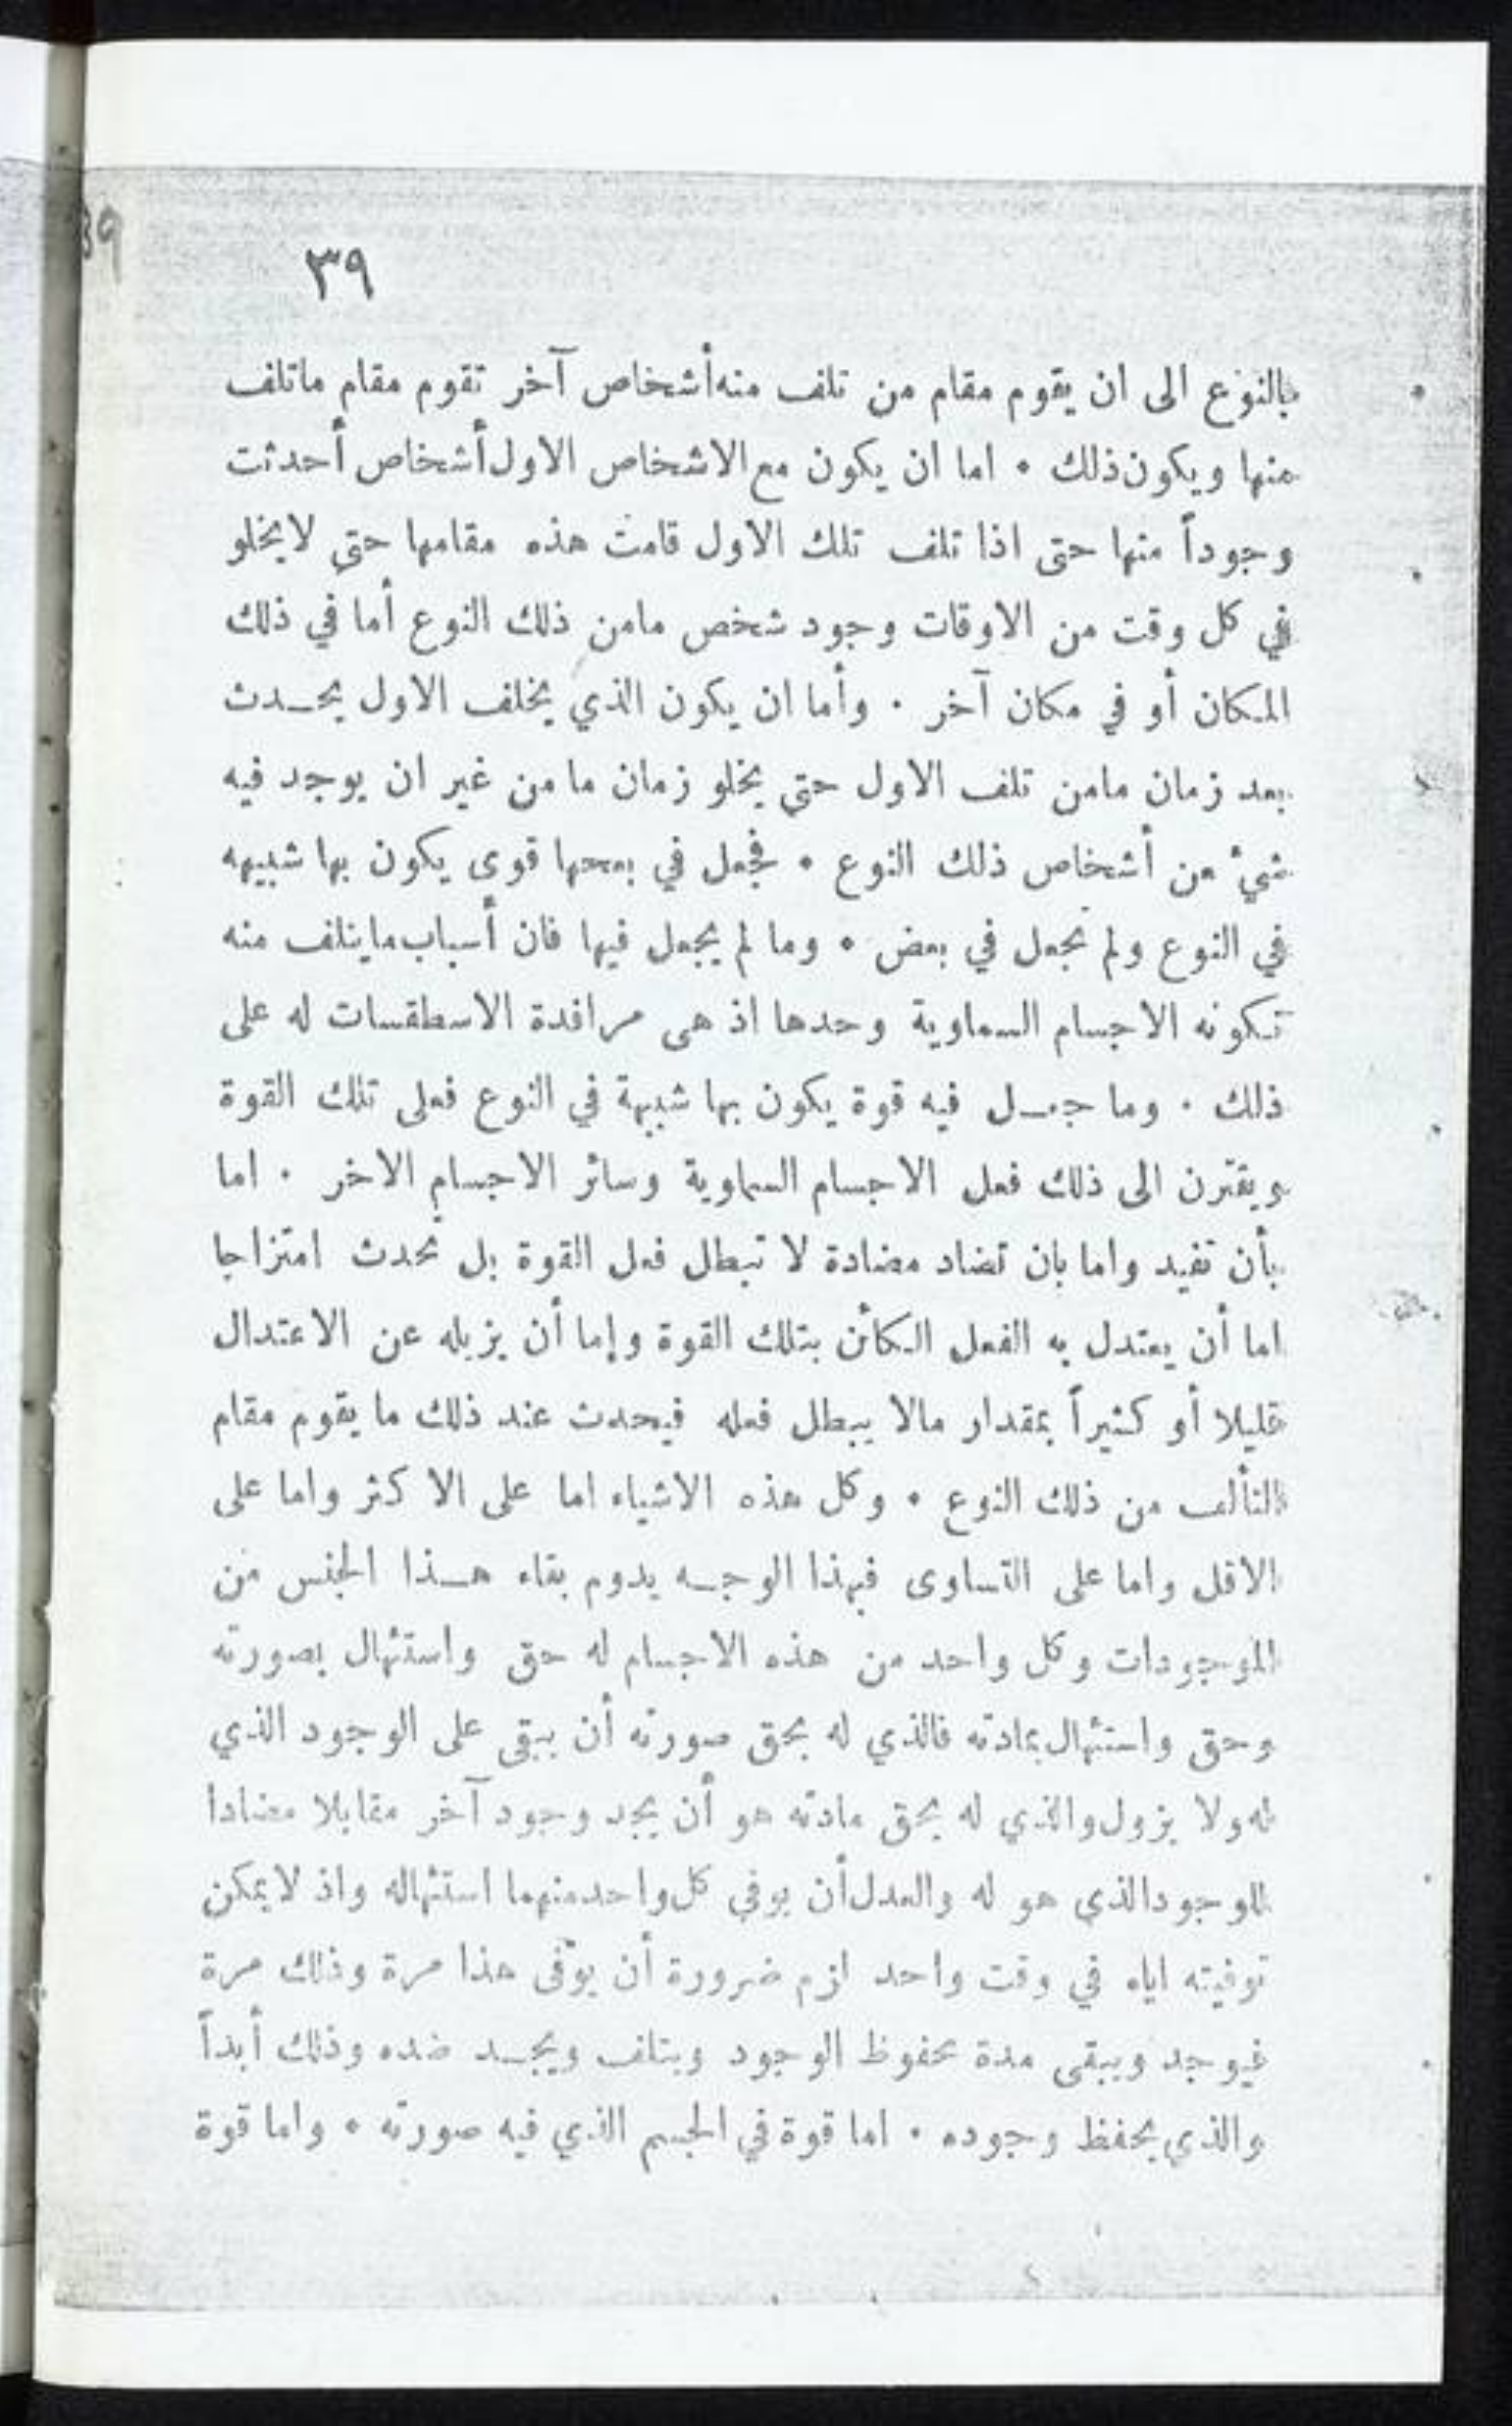 39
٣٩
بالنوع الى ان يقوم مقام من تلف منه أشخاص آخر تقوم مقام ماتلف
منها ويكون ذلك • اما ان يكون مع الاشخاص الاول أشخاص أحدثت
وجوداً منها حتى اذا تلف تلك الاول قامت هذه مقامها حتى لا يخلو
في كل وقت من الاوقات وجود شخص مامن ذلك النوع أما في ذلك
المكان أو في مكان آخر • وأما ان يكون الذي يخلف الاول يحـدث
بعد زمان مامن تلف الاول حتى يخلو زمان ما من غير ان يوجد فيه
شيء من أشخاص ذلك النوع • فجعل في بعضها قوى يكون بها شبيهه
في النوع ولم تجعل في بعض • وما لم يجعل فيها فان أسباب مايتلف منه
تكونه الاجسام السماوية وحدها اذ هى مرافدة الاسطقسات له على
ذلك • وما جعـل فيه قوة يكون بها شبيهة في النوع فعلى تلك القوة
ويقترن الى ذلك فعل الاجسام السماوية وسائر الاجسام الاخر • اما
بأن تفيد واما بان تضاد مضادة لا تبطل فعل القوة بل تحدث امتزاجا
اما أن يعتدل به الفعل الكائن بتلك القوة وإما أن يزيله عن الاعتدال
قليلا أو كثيراً بمقدار مالا يبطل فعله فيحدث عند ذلك ما يقوم مقام
التألف من ذلك النوع • وكل هذه الاشياء اما على الاكثر واما على
الاقل واما على التساوى فبهذا الوجـه يدوم بقاء هـذا الجنس من
الموجودات وكل واحد من هذه الاجسام له حق واستئهال بصورته
وحق واستئهال بمادته فالذي له بحق صورته أن يبقى على الوجود الذي
له ولا يزول والذي له بحق مادته هو أن يجد وجود آخر مقابلا مضادا
للوجود الذي هو له والعدل أن يوفي كل واحد منهما استئهاله واذ لا يمكن
توفيته اياه في وقت واحد لزم ضرورة أن يوفّى هذا مرة وذلك مرة
فيوجد ويبقى مدة محفوظ الوجود ويتلف ويجـد ضده وذلك أبداً
والذي يحفظ وجوده • اما قوة في الجسم الذي فيه صورته • واما قوة